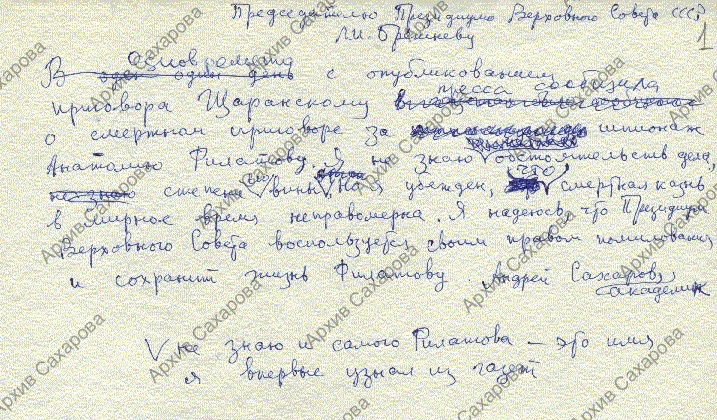 Председателю Президиума Верховного Совета СССР
Л.И. Брежневу
1
Одновременно
В один день с опубликованием
пресса сообщила
приговора Щаранскому
о смертном приговоре за шпионаж
Анатолию Филатову. Я не знаю обстоятельств дела,
не знаю степени его вины, но я убежден, что смертная казнь
в мирное время неправомерна. Я надеюсь, что Президиум
Верховного Совета воспользуется своим правом помилования
и сохранит жизнь Филатову. Андрей Сахаров,
академик
V не знаю и самого Филатова — это имя
я впервые узнал из газет
Архив Сахарова